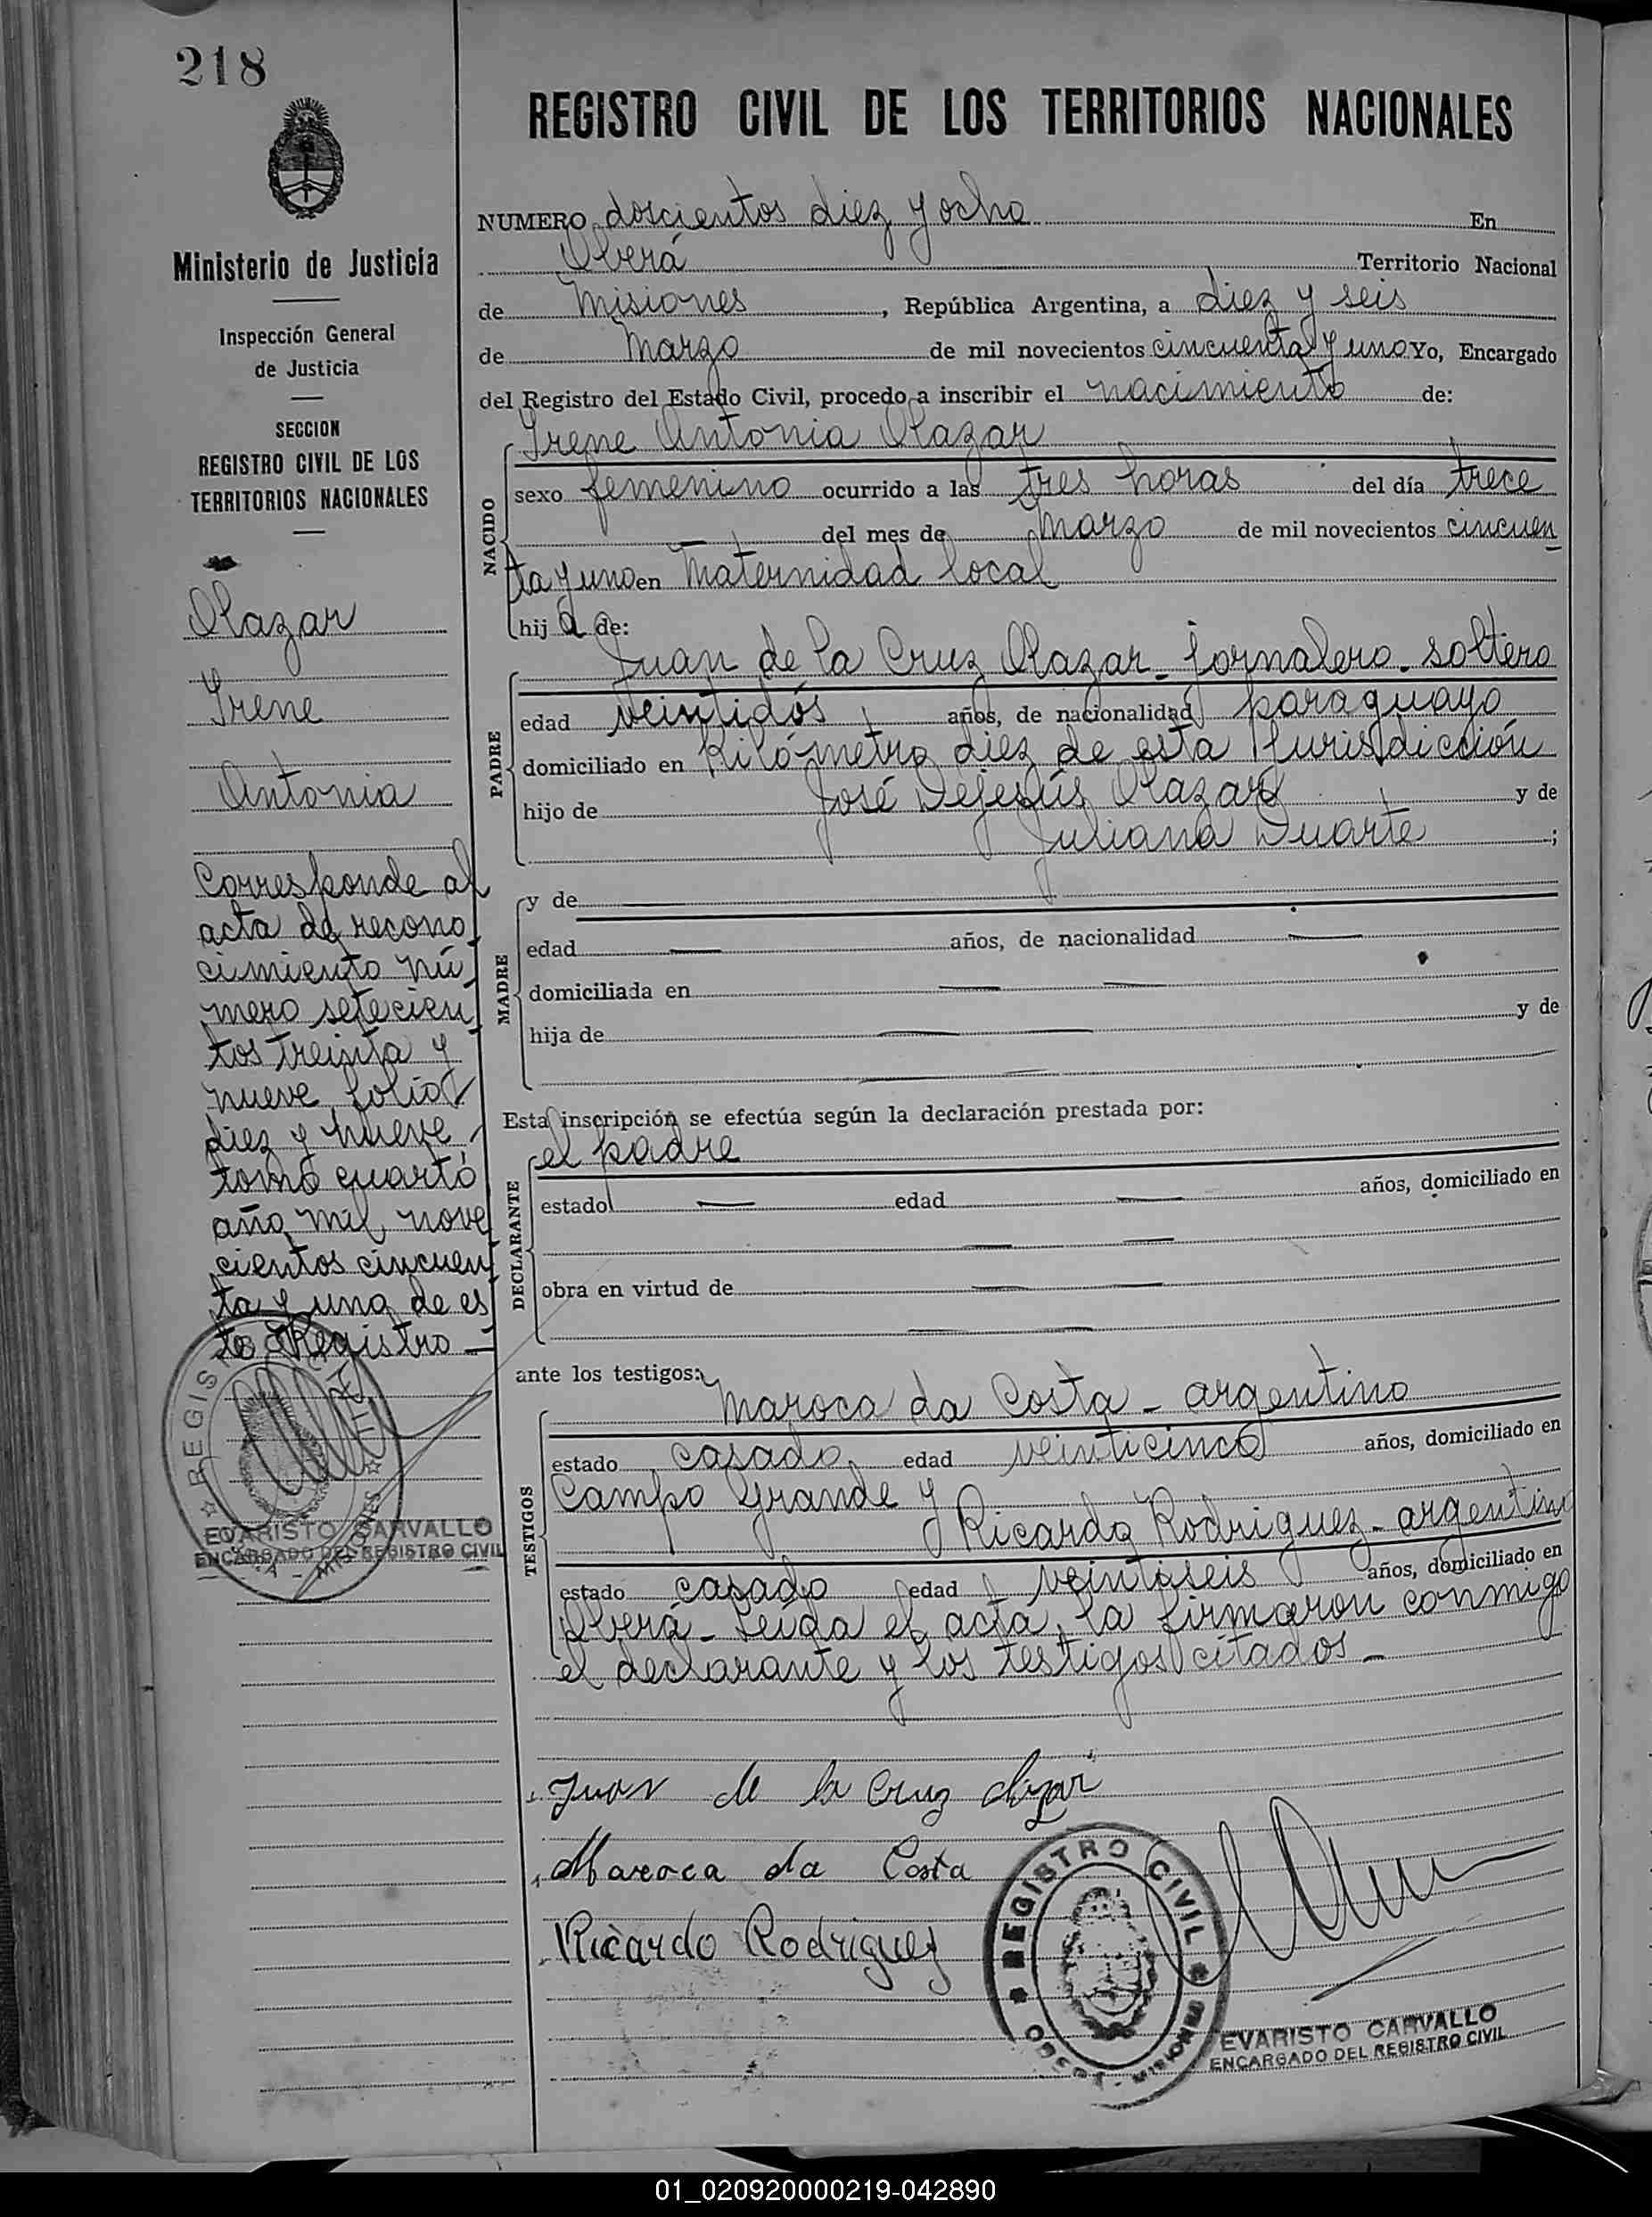 218
REGISTRO CIVIL DE LOS TERRITORIOS NACIONALES
Ministerio de Justicia
Inspección General
de Justicia
SECCION
REGISTRO CIVIL DE LOS
TERRITORIOS NACIONALES
Olazar
Irene
Antonia
Corresponde al
acta de recono
cimiento nú
mero setecien
tos treinta y
nueve, folio
diez y nueve,
tomo cuarto
año mil nove
cientos cincuen
ta y uno de es
te Registro -
EVARISTO CARVALLO
ENCARGADO DEL REGISTRO CIVIL
NUMERO doscientos diez y ocho En
Oberá Territorio Nacional
de Misiones, República Argentina, a diez y seis
de Marzo de mil novecientos cincuenta y uno Yo, Encargado
del Registro del Estado Civil, procedo a inscribir el nacimiento de:
NACIDO
Irene Antonia Olazar
sexo femenino ocurrido a las tres horas del día trece
del mes de Marzo de mil novecientos cincuen
ta y uno en Maternidad local
hij a de:
PADRE
Juan de la Cruz Olazar - jornalero - soltero
edad veintidós años, de nacionalidad paraguayo
domiciliado en Kilómetro diez de esta Jurisdicción
hijo de José Dejesús Olazar y de
Juliana Duarte ;
MADRE
y de
edad años, de nacionalidad
domiciliada en
hija de y de
Esta inscripción se efectúa según la declaración prestada por:
DECLARANTE
el padre
estado edad años, domiciliado en
obra en virtud de
ante los testigos:
TESTIGOS
Maroca da Costa - argentino
estado casado edad veinticinco años, domiciliado en
Campo Grande y
Ricardo Rodriguez - argentino
estado casado edad veintiseis años, domiciliado en
Oberá - Leída el acta, la firmaron conmigo
el declarante y los testigos citados -
Juan de la Cruz Olazar
Maroca da Costa
Ricardo Rodriguez
REGISTRO CIVIL
OBERA - MISIONES
EVARISTO CARVALLO
ENCARGADO DEL REGISTRO CIVIL
01_020920000219-042890